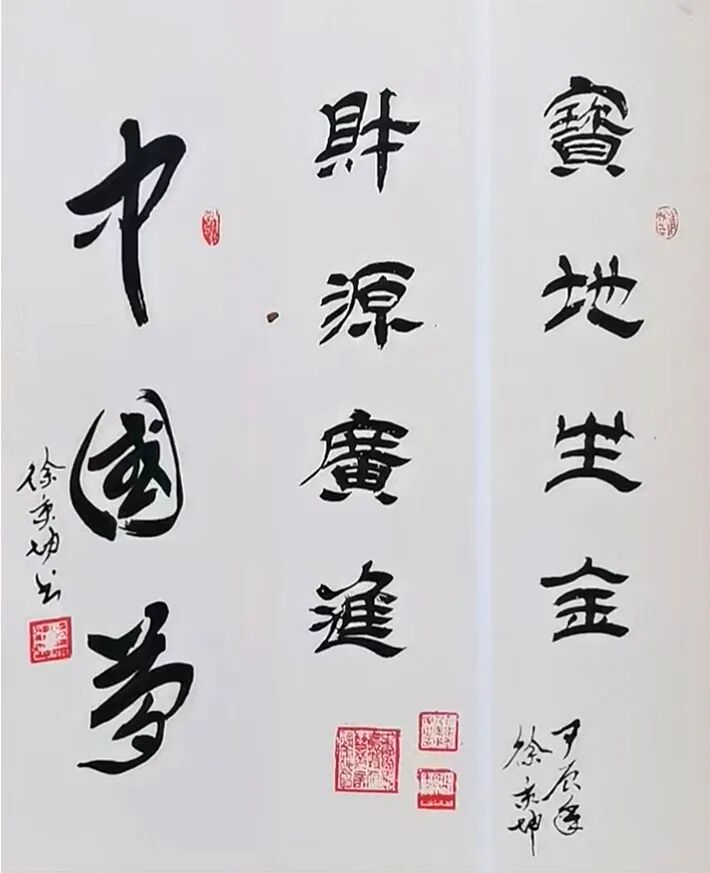 寶地生金
財源廣進
甲辰年
徐京坤
中國夢
徐京坤书